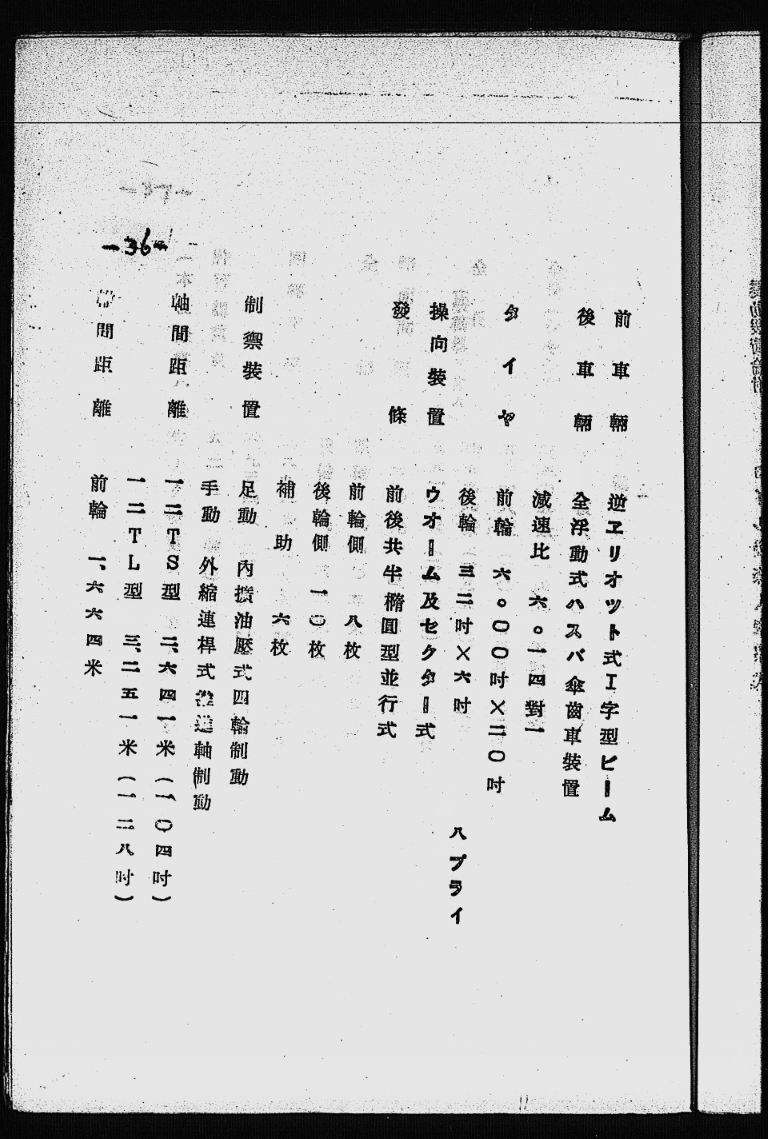 前車輛　逆ヱリオツト式工字型ビーム
後車輛　全浮動式ハスバ傘齒車裝置
減速比　六。一四對一
タイヤ　前輪　六。〇〇吋×二〇吋
後輪　三二吋×六吋　八プライ
操向裝置　ウオーム及セクター式
發條　前後共半橢圓型並行式
前輪側　八枚
後輪側　一〇枚
補助　六枚
制禦裝置　足動　內擴油壓式四輪制動
手動　外縮連桿式推進軸制動
軸間距離　一二TS型　二、六四一米（一〇四吋）
一二TL型　三、二五一米（一二八吋）
間距離　前輪　一、六六四米
-36-